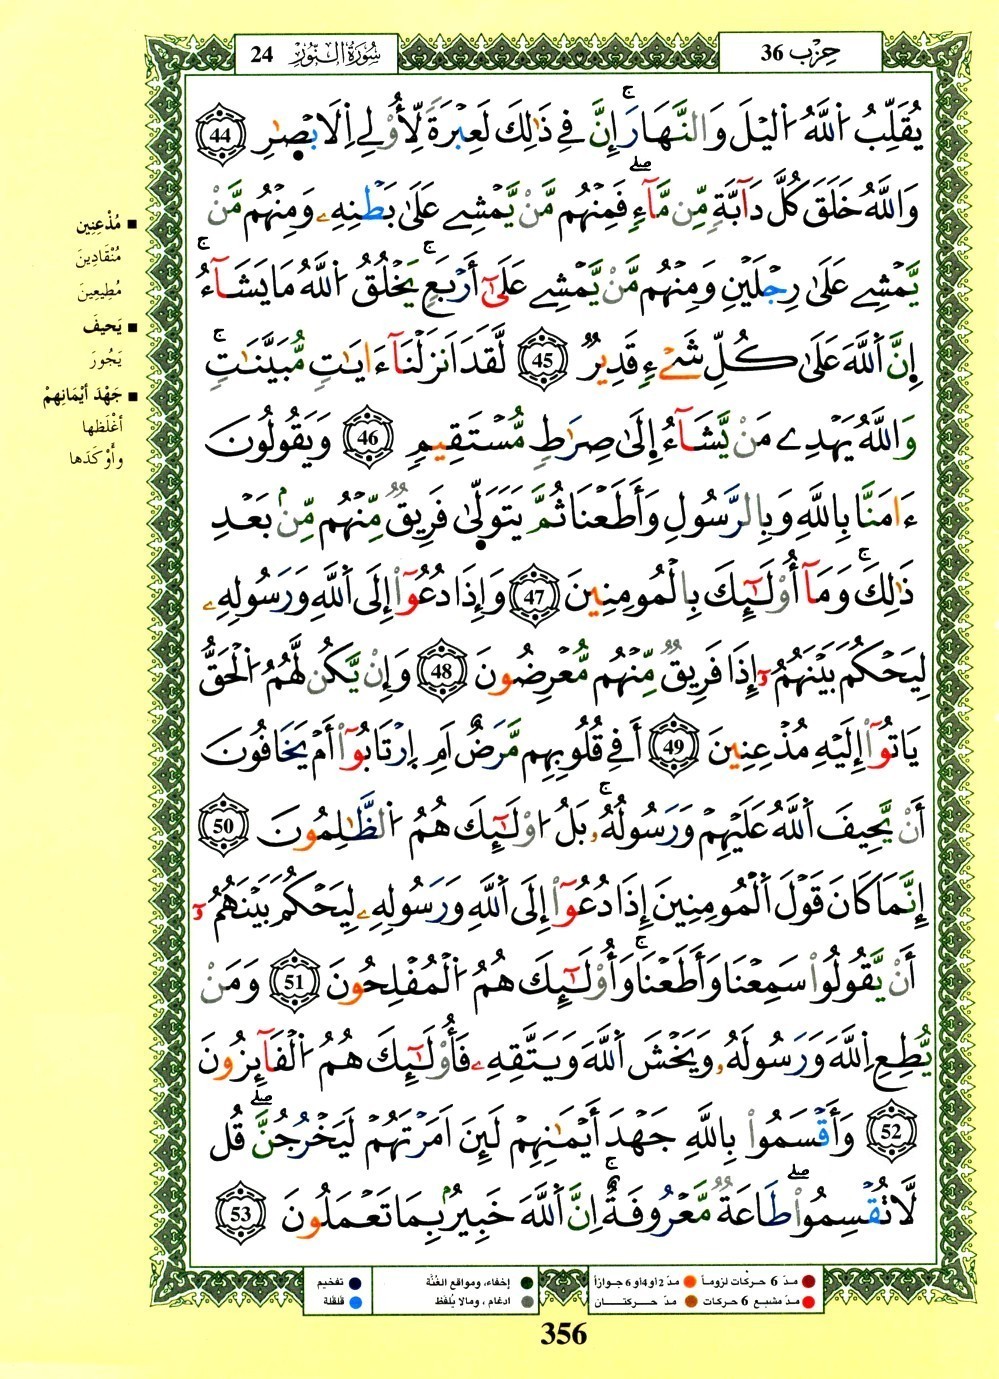 سُورَةُ النُّورِ 24
حِزْب 36
يُقَلِّبُ اُ۬للَّهُ اُ۬ليْلَ وَالنَّهَارَۖ إِنَّ فِے ذَٰلِكَ لَعِبْرَةٗ لِّأُوْلِے اِ۬لَابْصٰ۪رِ 44
وَاللَّهُ خَلَقَ كُلَّ دَآبَّةٖ مِّن مَّآءٖۖ فَمِنْهُم مَّنْ يَّمْشِے عَلَىٰ بَطْنِهِۦ وَمِنْهُم مَّنْ
يَّمْشِے عَلَىٰ رِجْلَيْنِ وَمِنْهُم مَّنْ يَّمْشِے عَلَىٰٓ أَرْبَعٖۚ يَخْلُقُ اُ۬للَّهُ مَا يَشَآءُۚ
إِنَّ اَ۬للَّهَ عَلَىٰ كُلِّ شَےْءٖ قَدِيرٞ 45 لَّقَدَ اَنزَلْنَآ ءَايَٰتٖ مُّبَيَّنَٰتٖۚ
وَاللَّهُ يَهْدِے مَنْ يَّشَآءُ إِلَىٰ صِرَٰطٖ مُّسْتَقِيمٖ 46 وَيَقُولُونَ
ءَامَنَّا بِاللَّهِ وَبِالرَّسُولِ وَأَطَعْنَا ثُمَّ يَتَوَلّ۪ىٰ فَرِيقٞ مِّنْهُم مِّنۢ بَعْدِ
ذَٰلِكَۚ وَمَآ أُوْلَٰٓئِكَ بِالْمُومِنِينَ 47 وَإِذَا دُعُوٓاْ إِلَى اَ۬للَّهِ وَرَسُولِهِۦ
لِيَحْكُمَ بَيْنَهُمُۥٓ إِذَا فَرِيقٞ مِّنْهُم مُّعْرِضُونَ 48 وَإِنْ يَّكُن لَّهُمُ اُ۬لْحَقُّ
يَاتُوٓاْ إِلَيْهِ مُذْعِنِينَ 49 أَفِے قُلُوبِهِم مَّرَضٌ اَمِ اِ۪رْتَابُوٓاْ أَمْ يَخَافُونَ
أَنْ يَّحِيفَ اَ۬للَّهُ عَلَيْهِمْ وَرَسُولُهُۥۚ بَلُ ا۟وْلَٰٓئِكَ هُمُ اُ۬لظَّٰلِمُونَ 50
إِنَّمَا كَانَ قَوْلَ اَ۬لْمُومِنِينَ إِذَا دُعُوٓاْ إِلَى اَ۬للَّهِ وَرَسُولِهِۦ لِيَحْكُمَ بَيْنَهُمُۥٓ
أَنْ يَّقُولُواْ سَمِعْنَا وَأَطَعْنَاۚ وَأُوْلَٰٓئِكَ هُمُ اُ۬لْمُفْلِحُونَ 51 وَمَنْ
يُّطِعِ اِ۬للَّهَ وَرَسُولَهُۥ وَيَخْشَ اَ۬للَّهَ وَيَتَّقِهِۦ فَأُوْلَٰٓئِكَ هُمُ اُ۬لْفَآئِزُونَ
52 وَأَقْسَمُواْ بِاللَّهِ جَهْدَ أَيْمَٰنِهِمْ لَئِنَ اَمَرْتَهُمْ لَيَخْرُجُنَّۖ قُل
لَّا تُقْسِمُواْۖ طَاعَةٞ مَّعْرُوفَةٌۚ اِنَّ اَ۬للَّهَ خَبِيرُۢ بِمَا تَعْمَلُونَ 53
■ مُذْعِنِين
مُنْقَادِينَ
مُطِيعِينَ
■ يَحيفَ
يَجُورَ
■ جَهْدَ أَيْمَانِهِمْ
أَغْلَظَها
وَأَوْكَدَها
مدّ 6 حركات لزوماً
مدّ 2 أو 4 أو 6 جوازاً
إخفاء، ومواقع الغُنَّة
تفخيم
مدّ مشبع 6 حركات
مدّ حـركتـــان
ادغام ، ومالا يُلفَظ
قلقلة
356